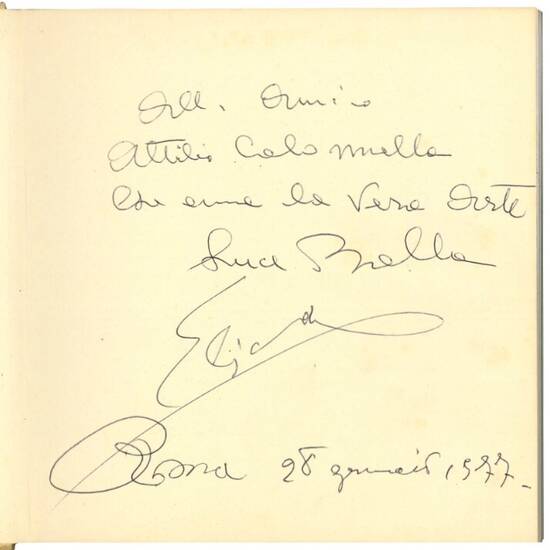 All' Amico
Attilio Colonnello
Che ama la Vera Arte
Luce Balla
Elica
Roma 28 gennaio 1977-